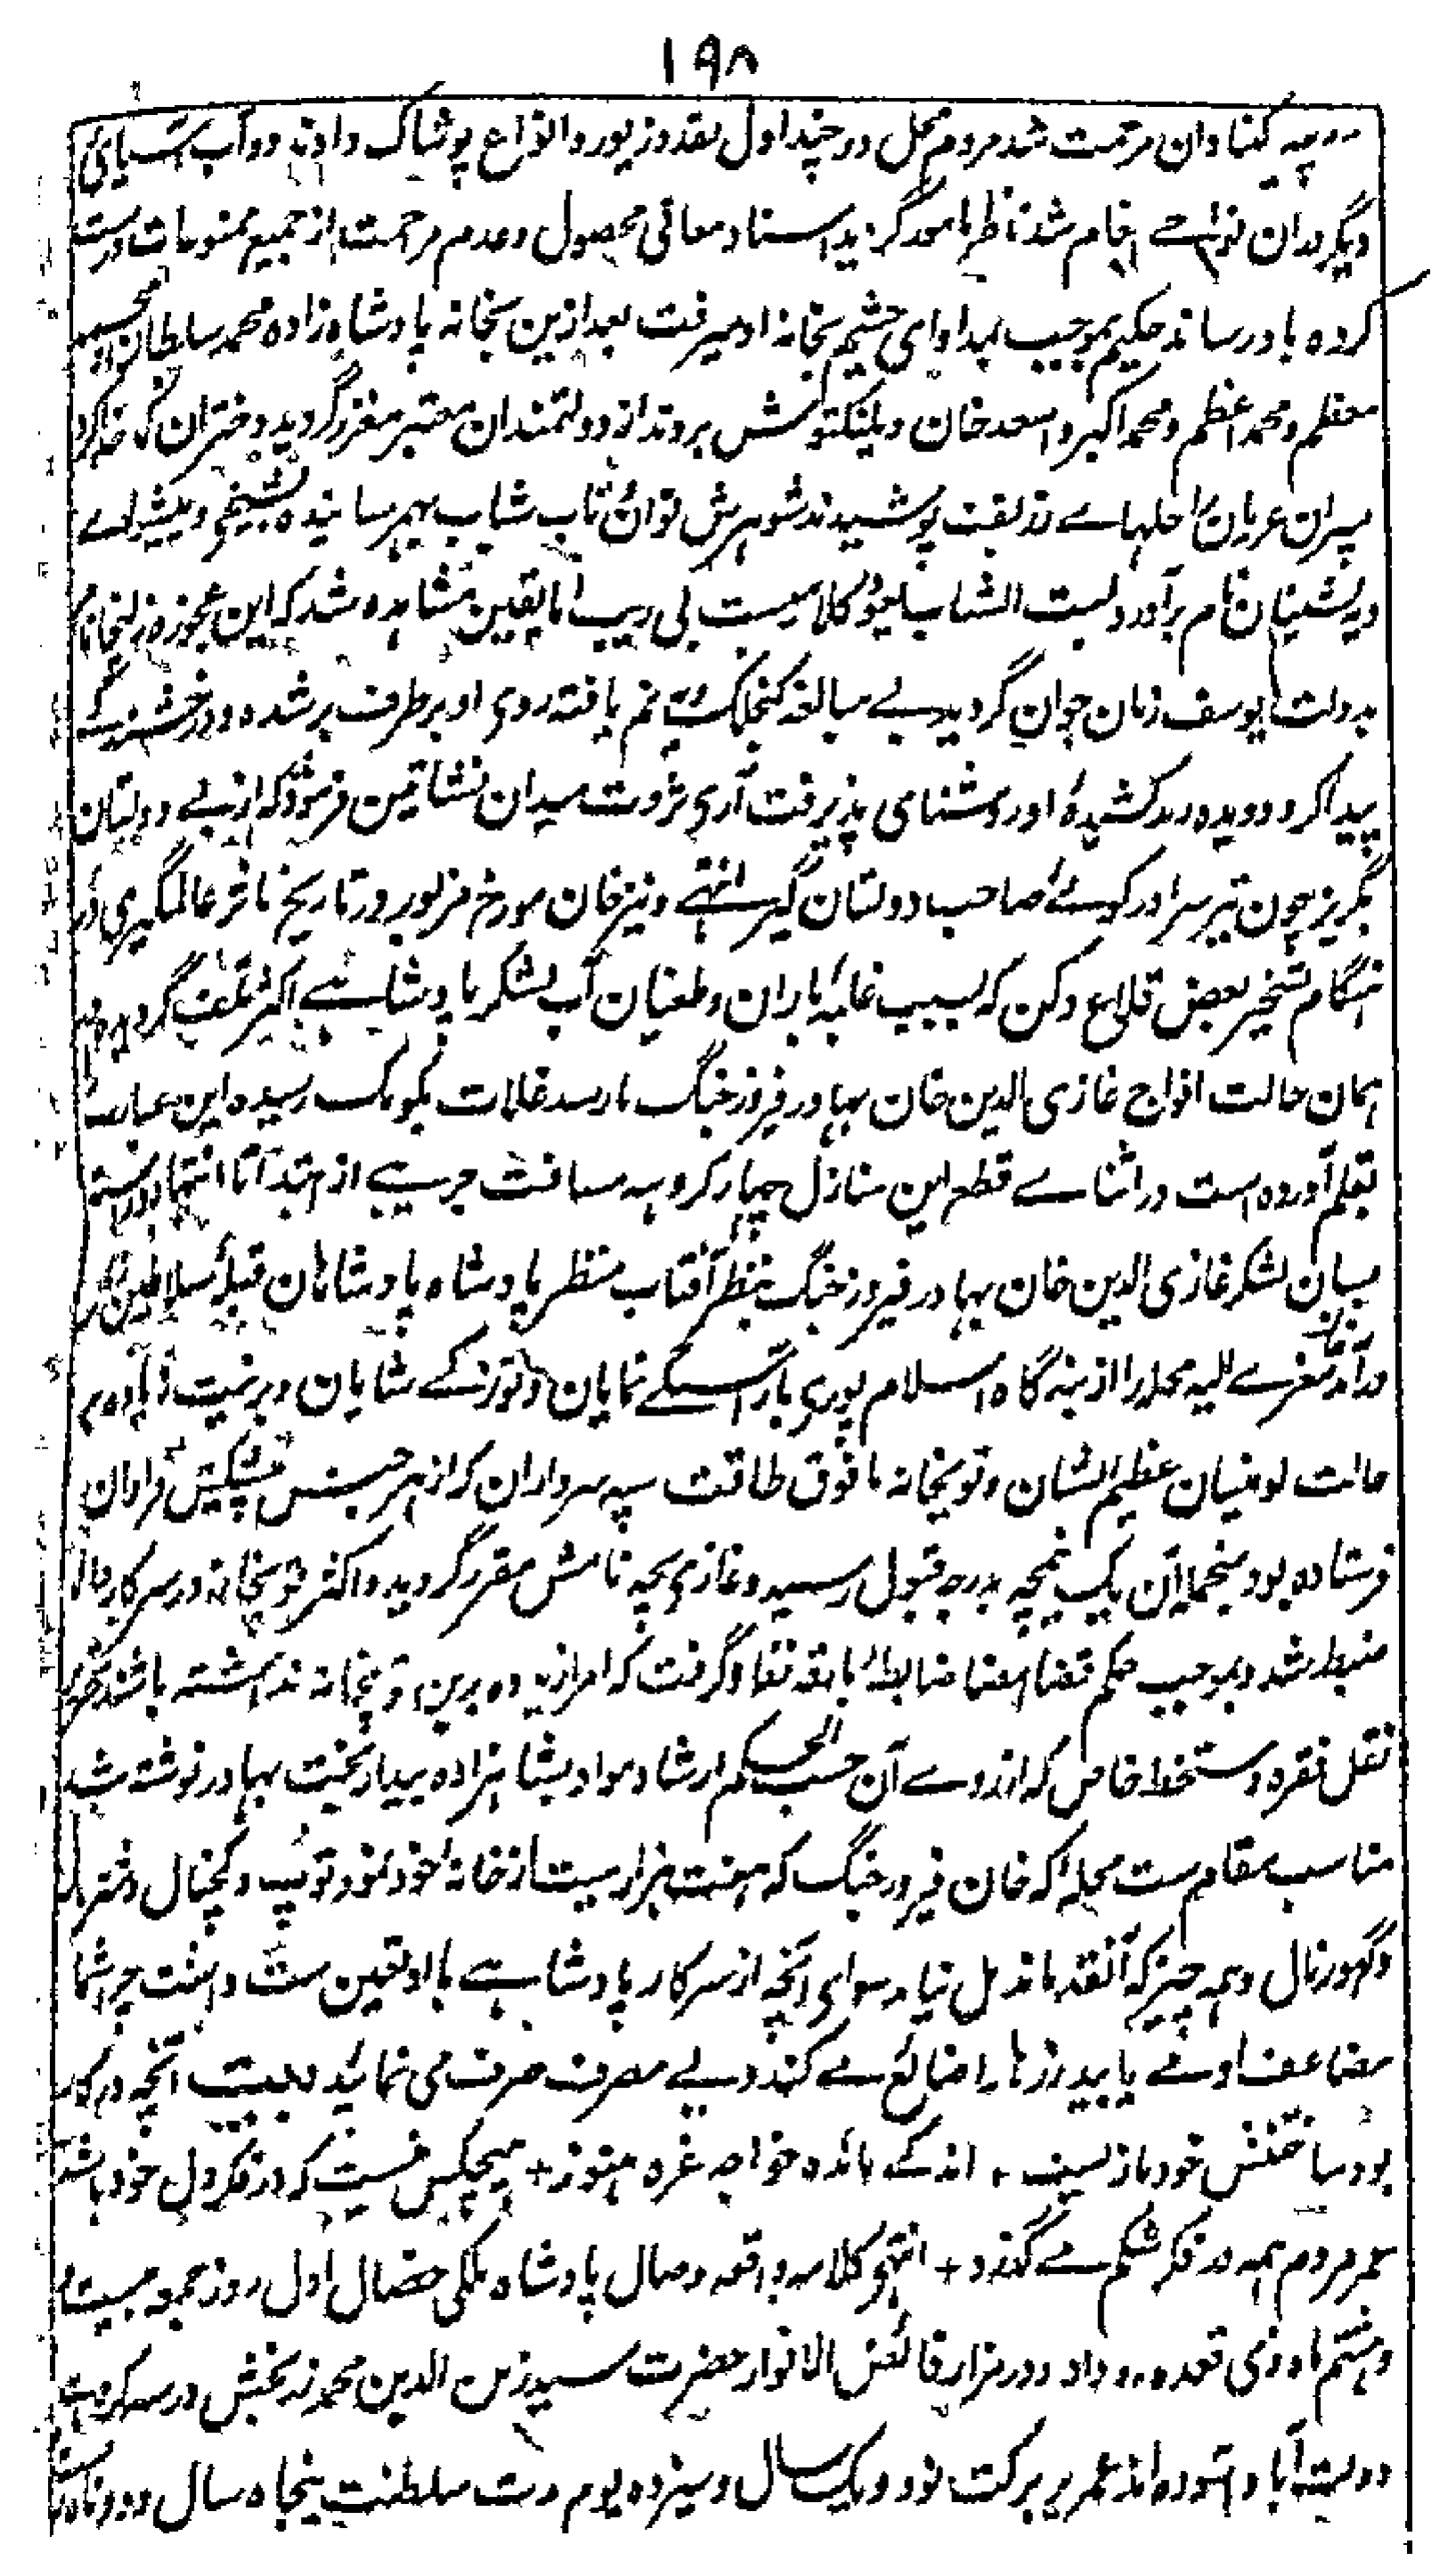 ۱۹۸
روپیه کنادان مرحمت شد مردم محل در چند اول نقد و زیور و انواع پوشاک دادند دو آب آسیای
دیگر دران نواحے انعام شد ناظر مامور گردید اسناد معافی محصول و عدم مزاحمت از جمیع ممنوعات درست
کرده باو رساند حکیم بموجب مداوای چشم بخانه او میرفت بعد ازین بخانه پادشاه زاده محمد سلطان و محمد
معظم و محمد اعظم و محمد اکبر و اسعد خان و یلنکتوش بردند از دولتمندان معتبر معزز گردید دختران را کدخدا کرد
پسران عریان را حلهاے زربفت پوشیدند شوهرش توان و تاب شباب بهم رسانیده بشیخی و پیشوائے
وریشنیان نام برآورد لیت الشباب یعود کلامیست بی ریب اما یقین مشاهده شد که این عجوزه زلیخا نام
بدولت یوسف زمان جوان گردید بے مبالغه کنجلک و خم یافته روی او برطرف بر شده و درخشندگے
پیدا کرد و دیده رمد کشیده او روشنای پذیرفت آری ثروت میدان نشاتین فرمود که از بے دولتان
بگریز چون تیر سرا در کوے صاحب دولتان گیر انتهے و نیز خان مورخ مزبور در تاریخ مآثر عالمگیری در
هنگام تسخیر بعض قلاع دکن که بسبب غلبه باران و طغیان آب لشکر پادشاهے اکثر تلف گردیده
همان حالت افواج غازی الدین خان بهادر فیروز جنگ با رسد غلات بکومک رسیده این عبارت
بقلم آورده است در اثناے قطع این منازل چهار کروه مسافت جریبے از ابتدا تا انتها
میان لشکر غازی الدین خان بهادر فیروز جنگ بنظر آفتاب منظر پادشاه پادشاهان قبله سلاطین
درآمد معزے الیه محله را از بنه گاه اسلام پوری بآراستگے نمایان و توزکے شایان و بزینت
حالت لو عظیم الشان و توپخانه مافوق طاقت سپه سرداران که از هر جنس پیشکش فراوان
فرستاده بود منجمله آن یک نیمچه بدرجه قبول رسید و غازی بچه نامش مقرر گردید و اکثر توپخانه در سرکار والا
ضبط شد و بموجب حکم قضا امضا ضابطه نفاذ گرفت که امرا زیاده برین توپخانه نداشته باشند
نقل فقره دستخط خاص که از روے آن حسب الحکم ارشاد مواد بشاهزاده بیدار بخت بهادر نوشته شد
مناسب مقام ست محله که خان فیروز جنگ که هفت هزاریست از خانه خود نمود توپ و گجنال و شترنال
و گهورنال و همه چیز که آنقدها ندیل نیامد سوای آنچه از سرکار پادشاهے با او تعین ست داشت چرا شما
مضاعف او مے یابید زرها را ضائع مے کنند و بے مصرف صرف می نمائید بیت آنچه درکار
بود ساختنش خود سازیست + اندکے مانده خواجه غره هنوز + هیچکس نیست که در فکر دل خود باشد
عمر مردم همه در فکر شکم مے گذرد + انتهی کلامه واقعه وصال پادشاه ملکی خصال اول روز جمعه بیست
و هشتم ماه ذی قعده رو داد و در مزار فائض الانوار حضرت سید زین الدین محمد زربخش در سه کروهے
دولت آباد آسوده اند عمر پر برکت نود و یک سال و سیزده یوم مدت سلطنت پنجاه سال و دو ماه